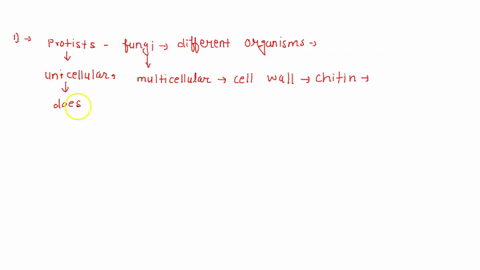 1) → Protists - fungi → different organisms →
↓ ↓
unicellular, multicellular → cell wall → chitin →
↓
does